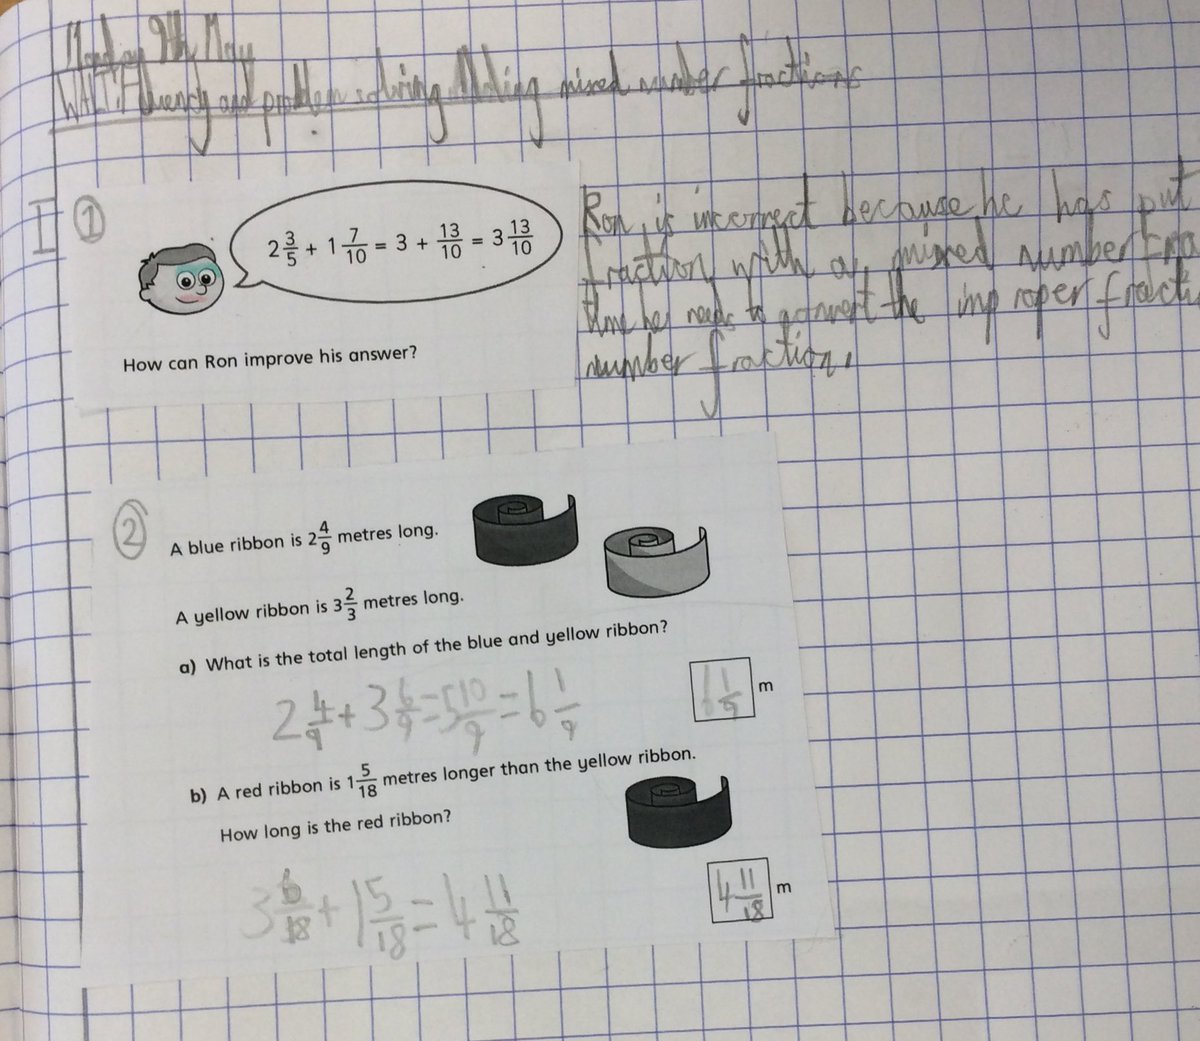 Monday 9th May
WALT: Fluency and problem solving Adding mixed number fractions
I ① 2 3/5 + 1 7/10 = 3 + 13/10 = 3 13/10
How can Ron improve his answer?
Ron is incorrect because he has put
fraction with a mixed number fra
time he needs to convert the improper fracti
number fraction.
② A blue ribbon is 2 4/9 metres long.
A yellow ribbon is 3 2/3 metres long.
a) What is the total length of the blue and yellow ribbon?
2 4/9 + 3 6/9 = 5 10/9 = 6 1/9
6 1/9 m
b) A red ribbon is 1 5/18 metres longer than the yellow ribbon.
How long is the red ribbon?
3 6/18 + 1 5/18 = 4 11/18
4 11/18 m